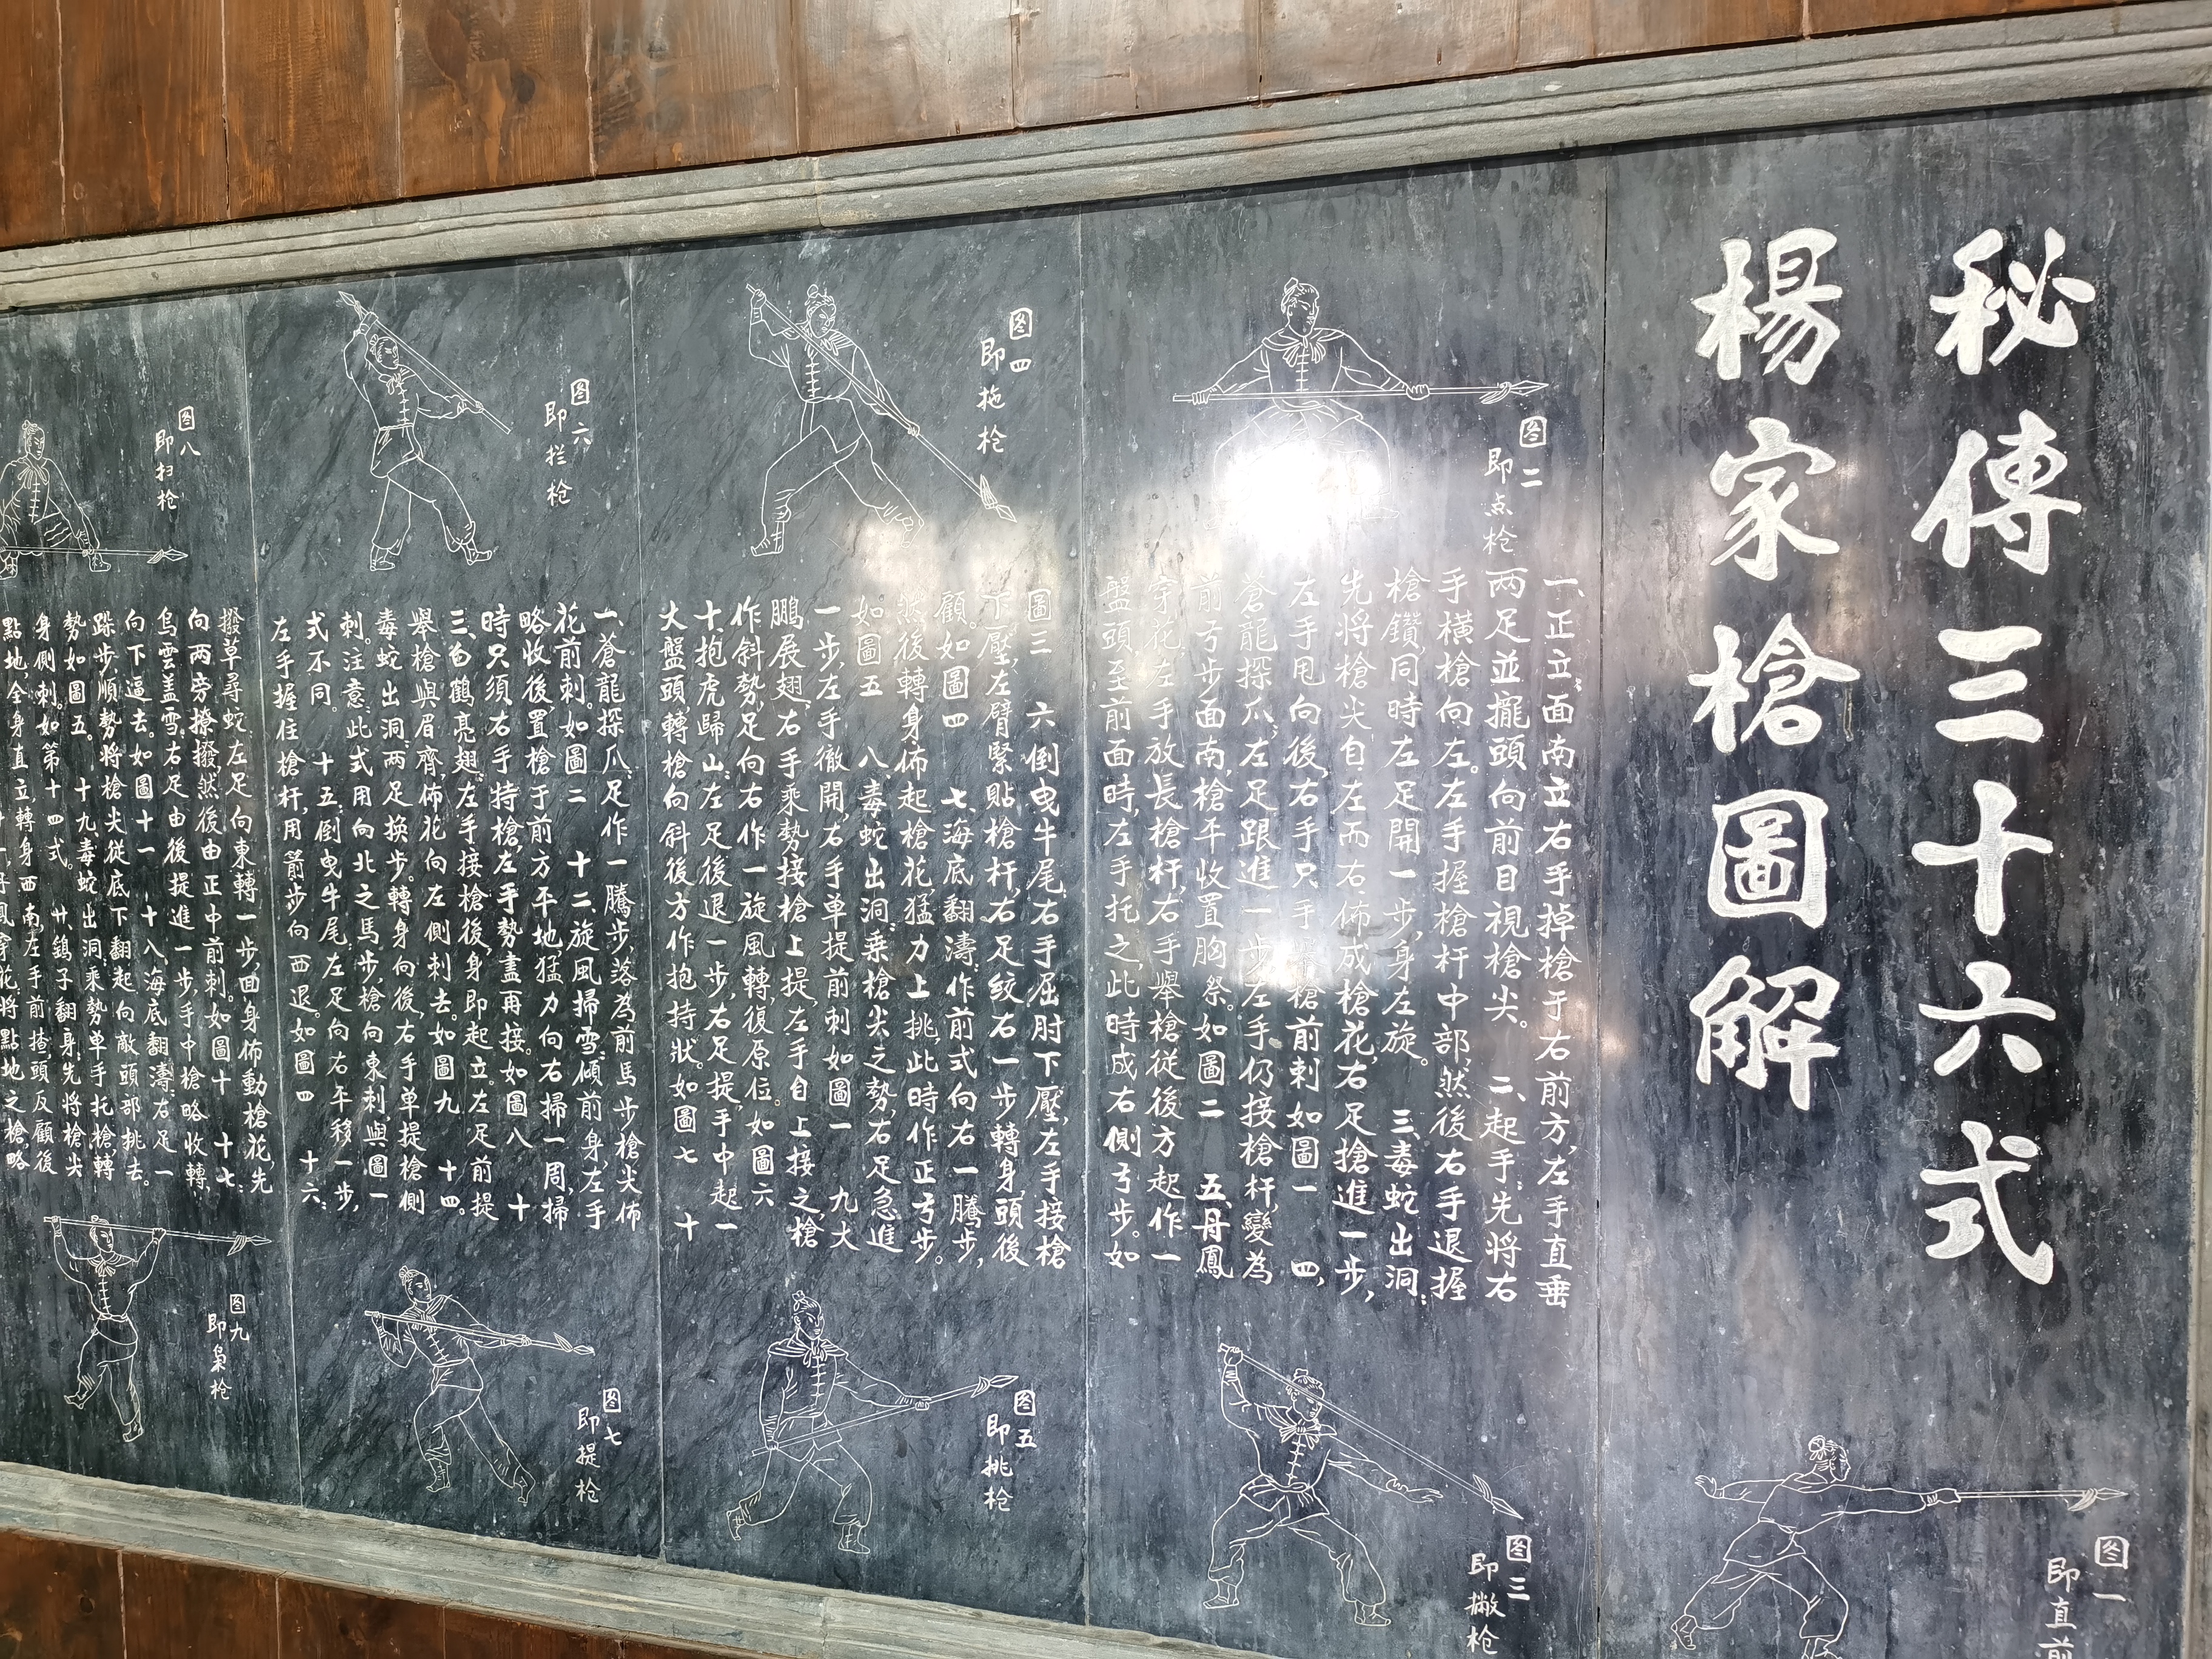 秘傳三十六式
楊家槍圖解
图一
即直前
图二
即点枪
一、正立：面南立右手掉槍于右前方，左手直垂
两足並擺頭向前目視槍尖。 二、起手：先將右
手横槍向左。左手握槍杆中部，然後右手退握
槍鑽，同時左足開一步，身左旋。 三、毒蛇出洞：
先將槍尖自左而右，佈成槍花，右足搶進一步，
左手甩向後，右手只手槍前刺如圖一 四，
蒼龍探爪：左足跟進一步左手仍接槍杆，變為
前弓步面南，槍平收置胸祭。如圖二 五、丹鳳
穿花：左手放長槍杆，右手舉槍從後方起作一
盤頭至前面時，左手托之，此時成右側弓步。如
图三
即撇枪
图四
即拖枪
圖三 六倒曳牛尾：右手屈肘下壓，左手接槍
下壓，左臂緊貼槍杆，右足絞右一步轉身，頭後
顧。如圖四 七、海底翻濤：作前式向右一騰步，
然後轉身佈起槍花，猛力上挑，此時作正弓步。
如圖五 八、毒蛇出洞：乗槍尖之勢，右足急進
一步，左手徹開，右手单提前刺如圖一 九大
鵬展翅：右手乘勢接槍上提，左手自上接之，槍
作斜勢，足向右作一旋風轉，復原位。如圖六
十抱虎歸山：左足後退一步，右足提，手中起一
大盤頭，轉槍向斜後方作抱持狀。如圖七 十
图五
即挑枪
图六
即拦枪
一、蒼龍探爪：足作一騰步，落為前馬步槍尖佈
花前刺。如圖二 十二旋風掃雪：傾前身，左手
略收後，置槍于前方平地，猛力向右掃一周，掃
時只須右手持槍，左手勢盡再接。如圖八 十
三、白鶴亮翅：左手接槍後，身即起立。左足前提
舉槍與眉齊，佈花向左側刺去。如圖九 十四。
毒蛇出洞：两足换步。轉身向後，右手单提槍側
刺。注意：此式用向北之馬步，槍向東刺，與圖一
式不同。 十五：倒曳牛尾：左足向右平移一步，
左手握住槍杆，用箭步向西退。如圖四 十六：
图七
即提枪
图八
即扫枪
撥草尋蛇：左足向東轉一步，面身佈動槍花，先
向两旁撩撥然後由正中前刺。如圖十 十七：
烏雲盖雪：右足由後提進一步，手中槍略收轉，
向下逼去。如圖十一 十八海底翻濤：右足一
跺步順勢将槍尖從底下翻起向敵頭部挑去。
勢如圖五。 十九毒蛇出洞：乘勢单手托槍，轉
身側刺。如第十四式。 廿、鷂子翻身：先將槍尖
點地，全身直立轉身西南，左手前揸頭反顧後
图九
即枭枪